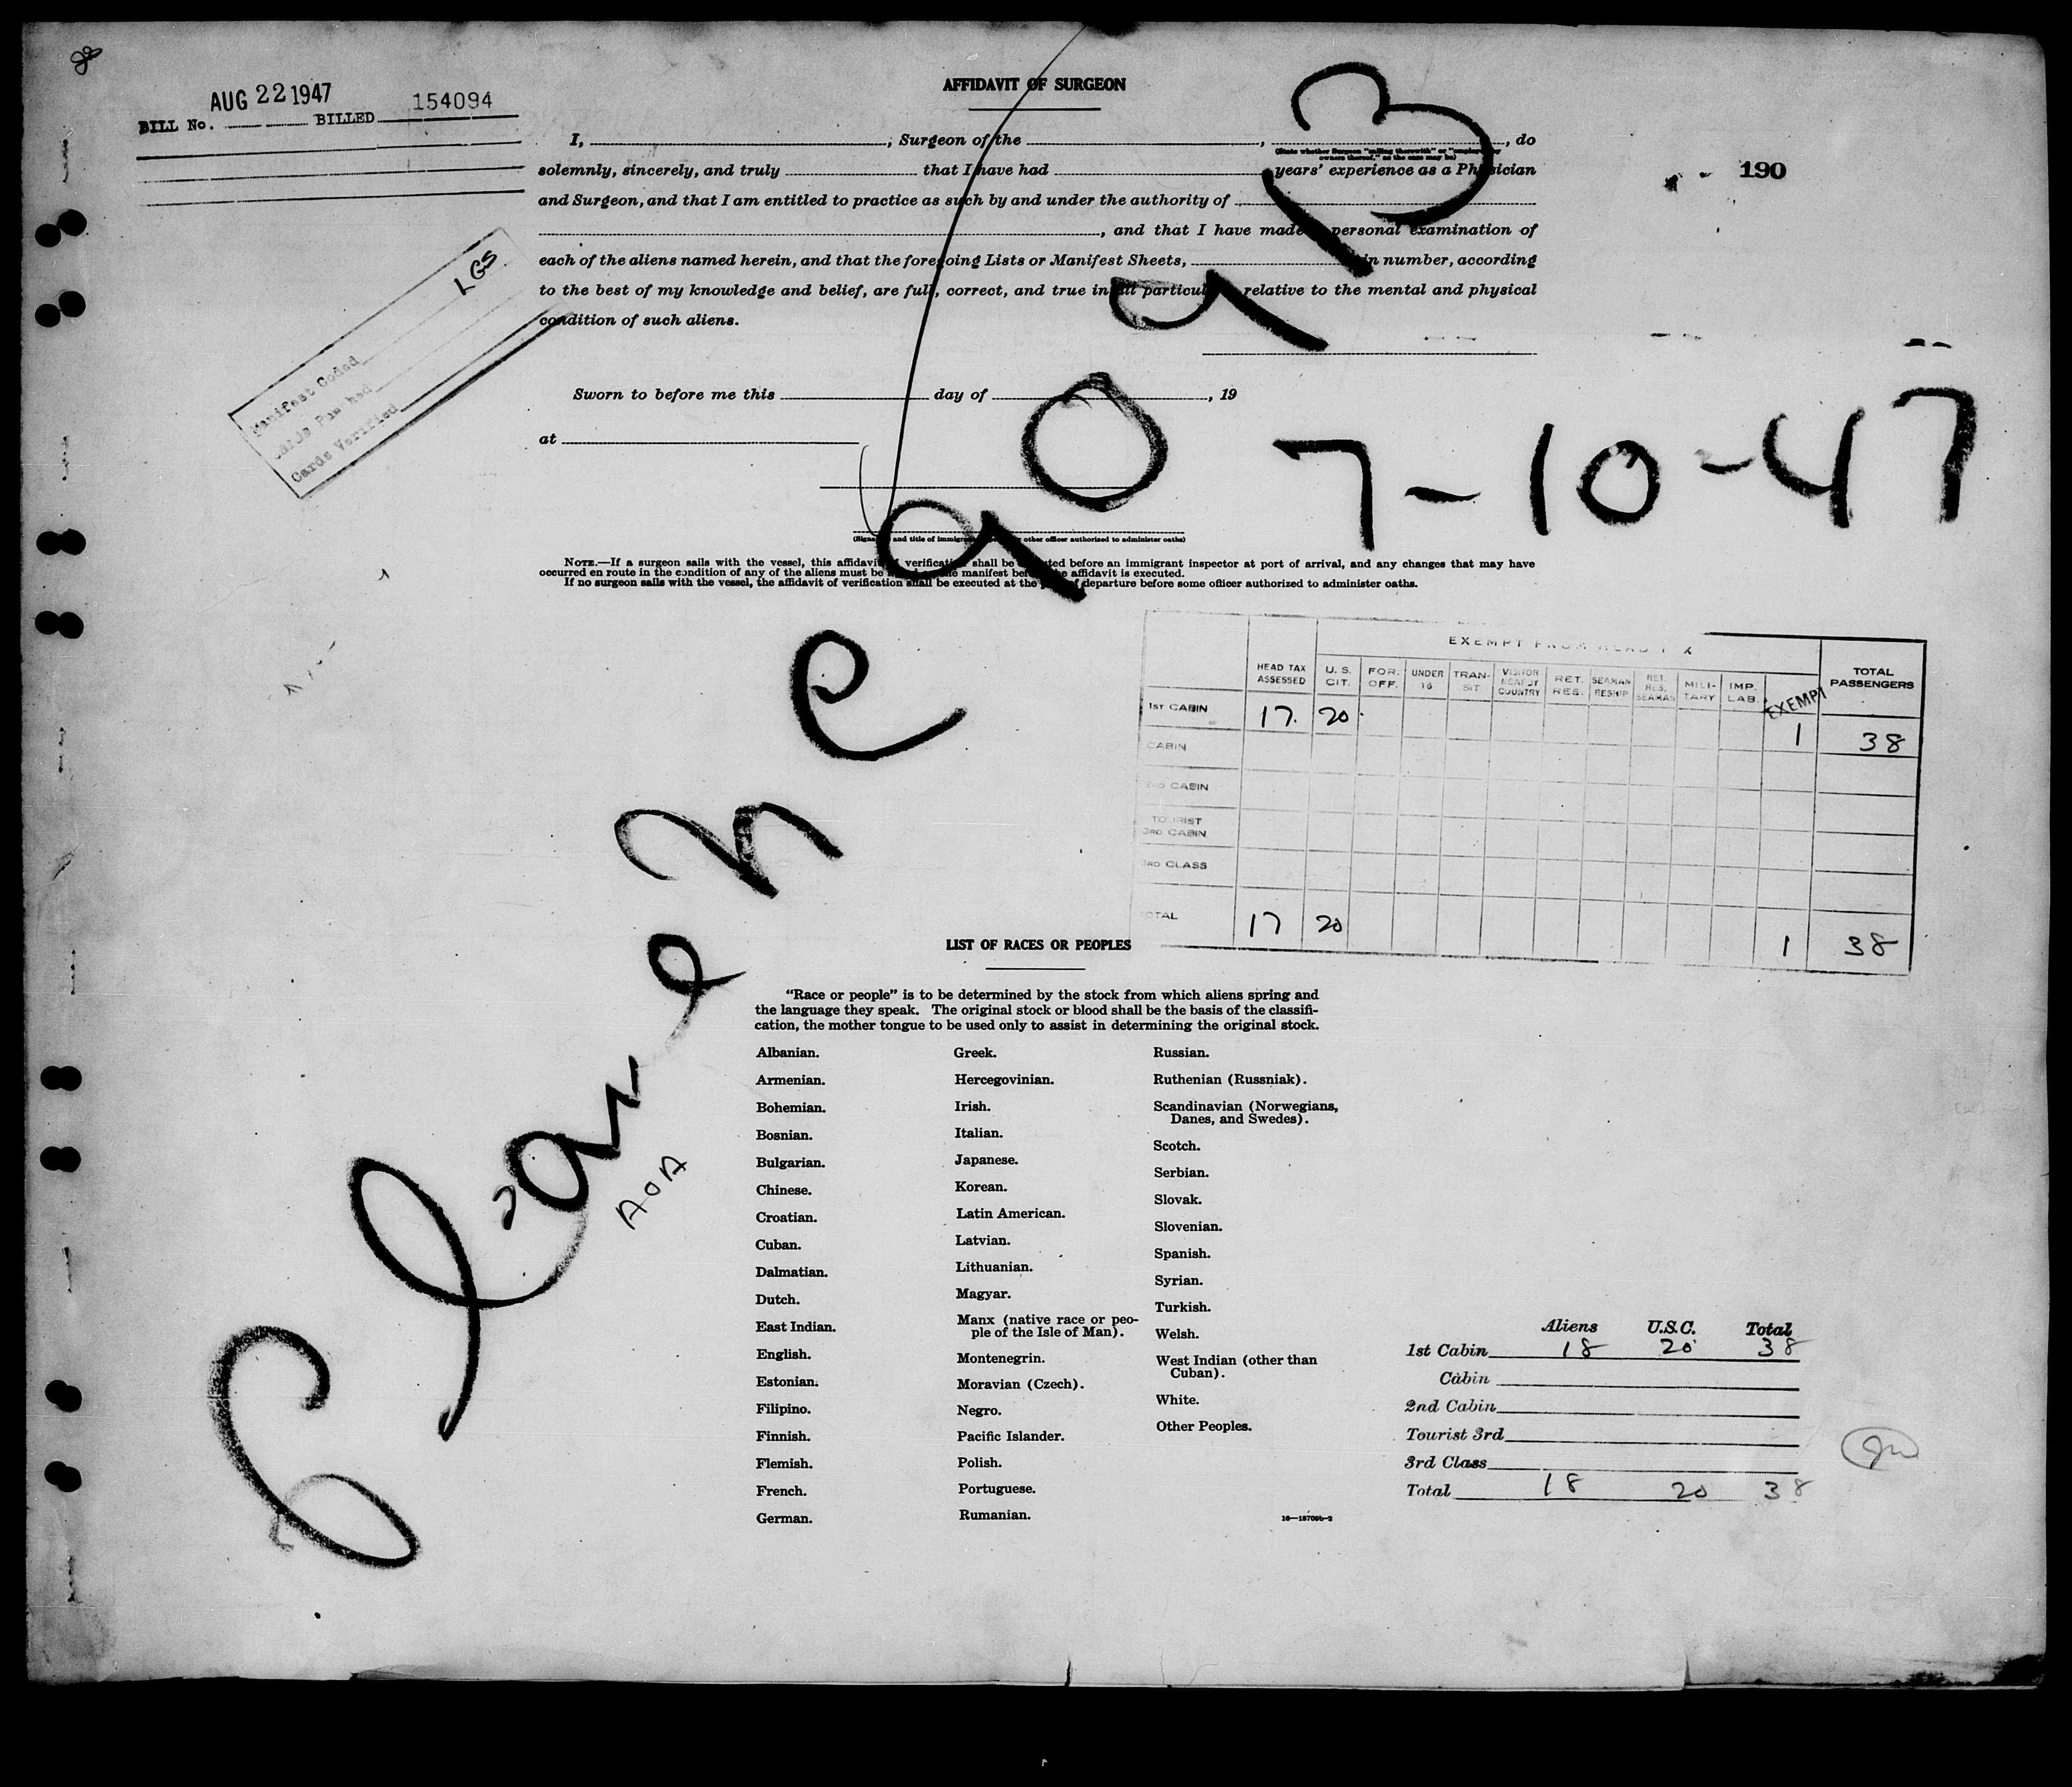 AUG 22 1947 154094
BILL No. BILLED
AFFIDAVIT OF SURGEON
I, , Surgeon of the , , do
(State whether Surgeon "sailing therewith" or "employed by owners thereof," as the case may be)
solemnly, sincerely, and truly that I have had years' experience as a Physician
and Surgeon, and that I am entitled to practice as such by and under the authority of
, and that I have made personal examination of
each of the aliens named herein, and that the foregoing Lists or Manifest Sheets, in number, according
to the best of my knowledge and belief, are full, correct, and true in all particulars relative to the mental and physical
condition of such aliens.
190
LGS
Manifest Coded
Cards Punched
Cards Verified
Sworn to before me this day of , 19
at
7-10-47
(Signature and title of immigrant other officer authorized to administer oaths)
NOTE.—If a surgeon sails with the vessel, this affidavit of verification shall be executed before an immigrant inspector at port of arrival, and any changes that may have
occurred en route in the condition of any of the aliens must be the manifest before the affidavit is executed.
If no surgeon sails with the vessel, the affidavit of verification shall be executed at the port of departure before some officer authorized to administer oaths.
EXEMPT FROM HEAD TAX
HEAD TAX ASSESSED U. S. CIT. FOR. OFF. UNDER 16 TRAN-SIT VISITOR NEARBY COUNTRY RET. RES. SEAMAN RESHIP RET. RES. SEAMAN MILI-TARY IMP. LAB. EXEMPT TOTAL PASSENGERS
1ST CABIN 17 20 1 38
CABIN
2ND CABIN
TOURIST 3RD CABIN
3RD CLASS
TOTAL 17 20 1 38
AOA
LIST OF RACES OR PEOPLES
"Race or people" is to be determined by the stock from which aliens spring and
the language they speak. The original stock or blood shall be the basis of the classifi-
cation, the mother tongue to be used only to assist in determining the original stock.
Albanian.
Armenian.
Bohemian.
Bosnian.
Bulgarian.
Chinese.
Croatian.
Cuban.
Dalmatian.
Dutch.
East Indian.
English.
Estonian.
Filipino.
Finnish.
Flemish.
French.
German.
Greek.
Hercegovinian.
Irish.
Italian.
Japanese.
Korean.
Latin American.
Latvian.
Lithuanian.
Magyar.
Manx (native race or peo-
ple of the Isle of Man).
Montenegrin.
Moravian (Czech).
Negro.
Pacific Islander.
Polish.
Portuguese.
Rumanian.
Russian.
Ruthenian (Russniak).
Scandinavian (Norwegians,
Danes, and Swedes).
Scotch.
Serbian.
Slovak.
Slovenian.
Spanish.
Syrian.
Turkish.
Welsh.
West Indian (other than
Cuban).
White.
Other Peoples.
16—18709b-2
Aliens U.S.C. Total
1st Cabin 18 20 38
Cabin
2nd Cabin
Tourist 3rd
3rd Class
Total 18 20 38